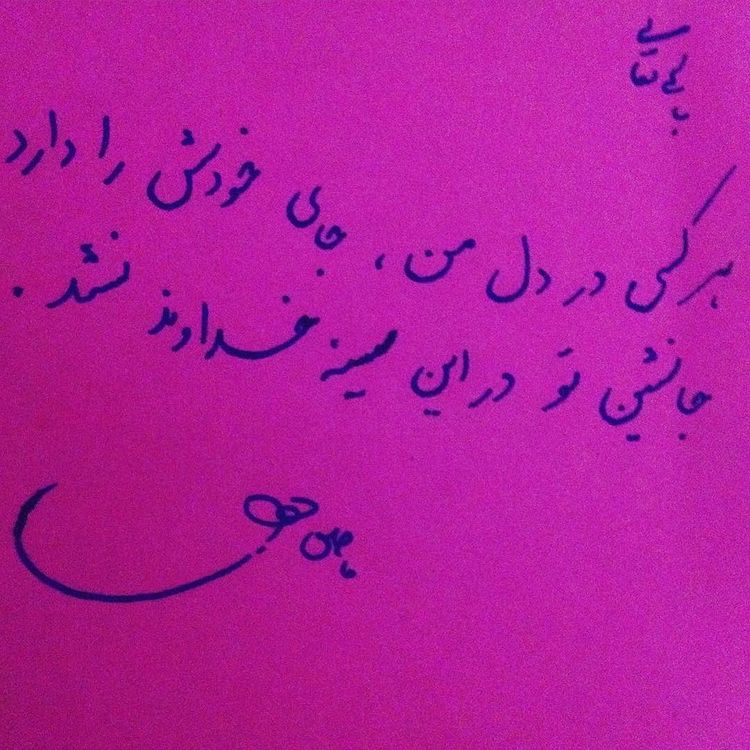 هر کسی در دل من، جای خودش را دارد
جانشین تو در این سینه خداوند نشد.